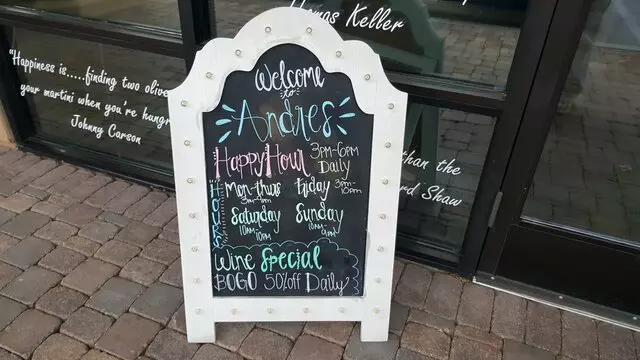 Thomas Keller
"Happiness is.....finding two olive
your martini when you're hungr
Johnny Carson
than the
rd Shaw
Welcome
to
Andres
Happy Hour 3pm-6pm
Daily
HOURS
Mon-thurs Friday 3pm-
10pm
Saturday Sunday
10am 10am
10pm 9pm
Wine Special
BOGO 50% off Daily